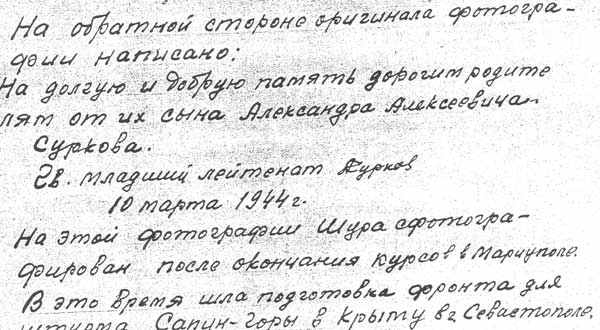 На обратной стороне оригинала фотогра-
фии написано:
На долгую и добрую память дорогим родите
лям от их сына Александра Алексеевича
Суркова.
Гв. младший лейтенат Сурков
10 марта 1944г.
На этой фотографии Шура сфотогра-
фирован после окончания курсов в Мариуполе.
В это время шла подготовка фронта для
штурма Сапун-Горы в Крыму в г. Севастополе.